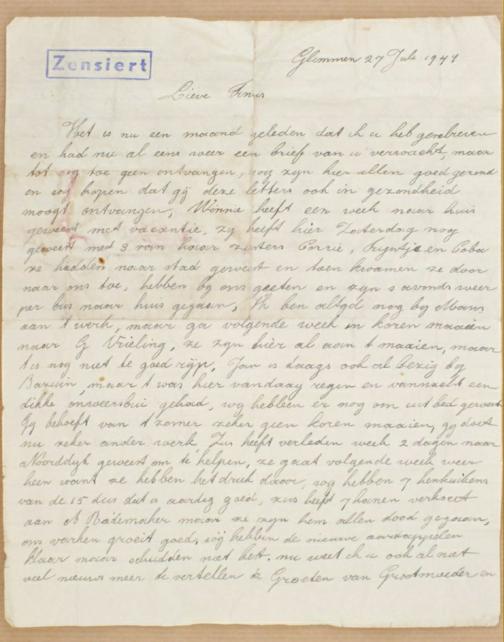 Zensiert
Glimmen 27 Juli 1941
Lieve
Het is nu een maand geleden dat ik u heb geschreven
en had nu al eens weer een brief van u verwacht, maar
tot nog toe geen ontvangen, wij zijn hier allen goed gezond
en wij hopen dat gij deze letters ook in gezondheid
moogt ontvangen, Winnie heeft een week naar huis
geweest met vacantie, zij heeft hier Zaterdag nog
geweest met 3 van haar zusters Corrie, en Coba
ze hadden naar stad geweest en toen kwamen ze door
naar ons toe, hebben bij ons geeten en zijn s avonds weer
per bus naar huis gegaan, Ik ben altijd nog bij
aan t werk, maar ga volgende week in koren maaien
naar G Vrieling, ze zijn hier al aan t maaien, maar
t is nog niet te goed rijp, Jan is daags ook al bezig bij
maar t was hier vandaag regen en vannacht een
dikke onweersbui gehad, wij hebben er nog om uit bed geweest
Gij behoeft van t zomer zeker geen koren maaien, gij doet
nu zeker ander werk Zus heeft verleden week 2 dagen naar
Noorddijk geweest om te helpen, ze gaat volgende week weer
heen want ze hebben het druk daar, wij hebben 7 henkuikens
van de 15 dus dat is aardig goed, zus heeft 7 hanen verkocht
aan A Rademaker maar ze zijn hem allen dood gegaan,
om varken groeit goed, wij hebben de nieuwe aardappelen
klaar maar schudden niet het. nu weet ik u ook al niet
veel nieuws meer te vertellen Groeten van Grootmoeder en